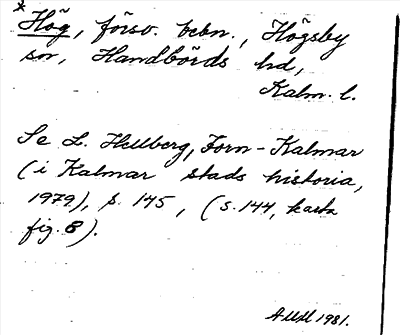 *
Hög, försv. bebn., Högsby
sn, Handbörds hd,
Kalm. l.
Se L. Hellberg, Forn-Kalmar
(i Kalmar stads historia,
1979), s. 145, (s. 144, karta
fig. 8).
1981.